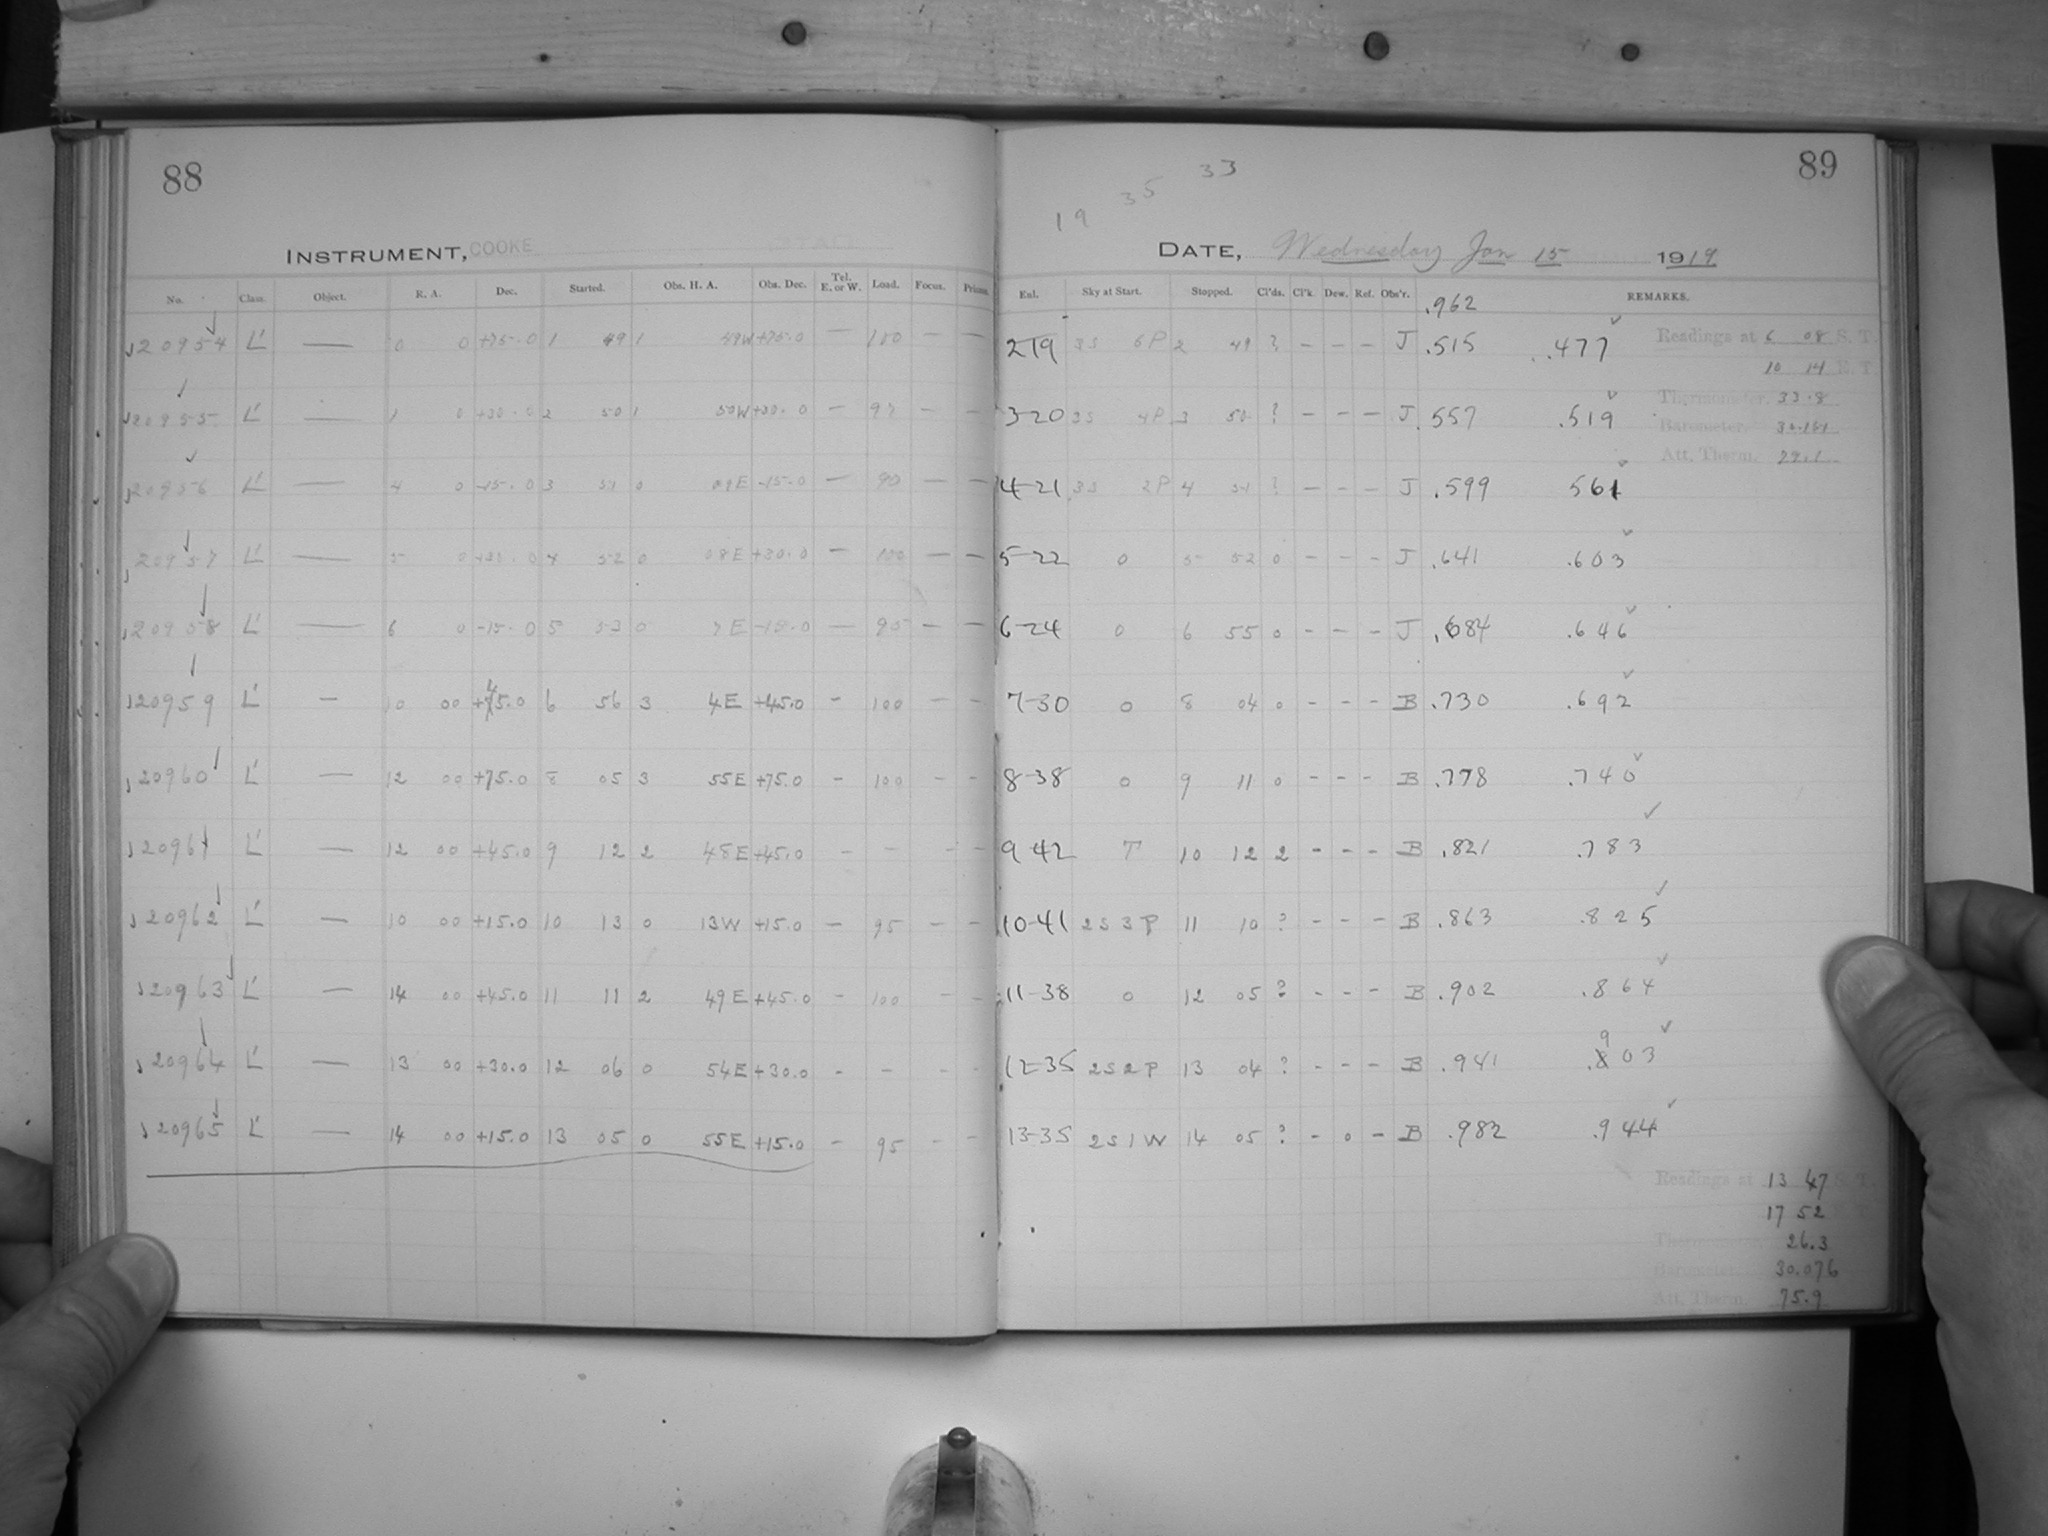 88
INSTRUMENT, COOKE
No. Class. Object. R. A. Dec. Started. Obs. H. A. Obs. Dec. Tel. E. or W. Load. Focus. Prisms.
20954 L' — 0 0 +75.0 1 49 1 49W +75.0 — 100 — —
20955 L' — 1 0 +30.0 2 50 1 50W +30.0 — — —
20956 L' — 4 0 -15.0 3 51 0 09E -15.0 — 90 — —
20957 L' — 5 0 +30.0 4 52 0 08E +30.0 — 100 — —
20958 L' — 6 0 -15.0 5 53 0 7E -15.0 — 90 — —
20959 L' — 10 00 +45.0 6 56 3 4E +45.0 - 100 - -
20960 L' — 12 00 +75.0 8 05 3 55E +75.0 - 100 - -
20961 L' — 12 00 +45.0 9 12 2 48E +45.0 - - - -
20962 L' — 10 00 +15.0 10 13 0 13W +15.0 - 95 - -
20963 L' — 14 00 +45.0 11 11 2 49E +45.0 - 100 - -
20964 L' — 13 00 +30.0 12 06 0 54E +30.0 - - - -
20965 L' — 14 00 +15.0 13 05 0 55E +15.0 - 95 - -
89
33
35
19
DATE, Wednesday Jan 15 1919
Exl. Sky at Start. Stopped. Cl'ds. Cl'k. Dew. Ref. Obs'r. REMARKS.
.962
2-19 3S 6P 2 49 ? - - - J .515 .477
3-20 3S 4P 3 50 ? - - - J .557 .519
4-21 3S 2P 4 51 ? - - - J .599 561
5-22 0 5 52 0 - - - J .641 .603
6-24 0 6 55 0 - - - J .684 .646
7-30 0 8 04 0 - - - B .730 .692
8-38 0 9 11 0 - - - B .778 .740
9-42 T 10 12 2 - - - B .821 .783
10-41 2S 3P 11 10 ? - - - B .863 .825
11-38 0 12 05 ? - - - B .902 .864
12-35 2S 2P 13 04 ? - - - B .941 .903
13-35 2S 1W 14 05 ? - 0 - B .982 .944
Readings at 6 08 S. T.
10 14 E. T.
Thermometer. 33.8
Barometer.
Att. Therm.
Readings at 13 47 S. T.
17 52
Thermometer 26.3
Barometer 30.076
Att. Therm. 75.9